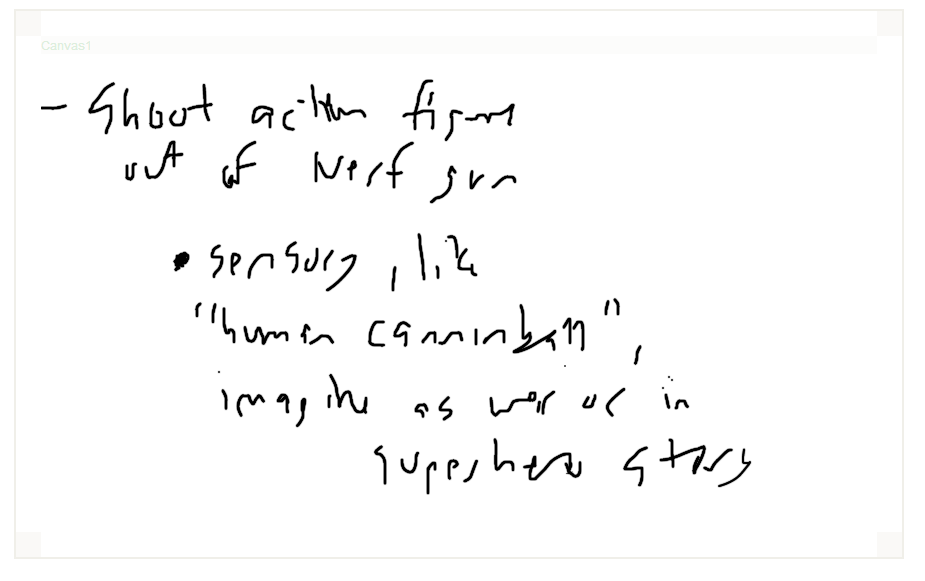 Canvas1
- Shoot action figure
out of Nerf gun
• sensory, like
"human canninball",
imagine as war or in
superhero story